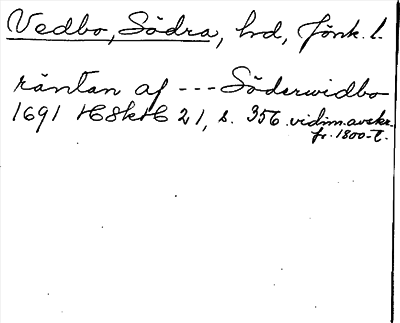 Vedbo, Södra, hrd, Jönk. l.
räntan af --- Söderwidbo
1691 HSkHC 21, s. 356. vidim. avskr.
fr. 1800-t.